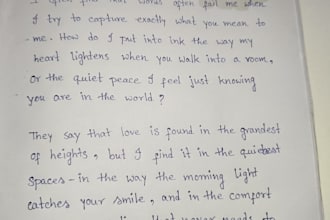 words often fail me when
I try to capture exactly what you mean to
me. How do I put into ink the way my
heart lightens when you walk into a room,
or the quiet peace I feel just knowing
you are in the world?
They say that love is found in the grandest
of heights, but I find it in the quietest
spaces - in the way the morning light
catches your smile, and in the comfort